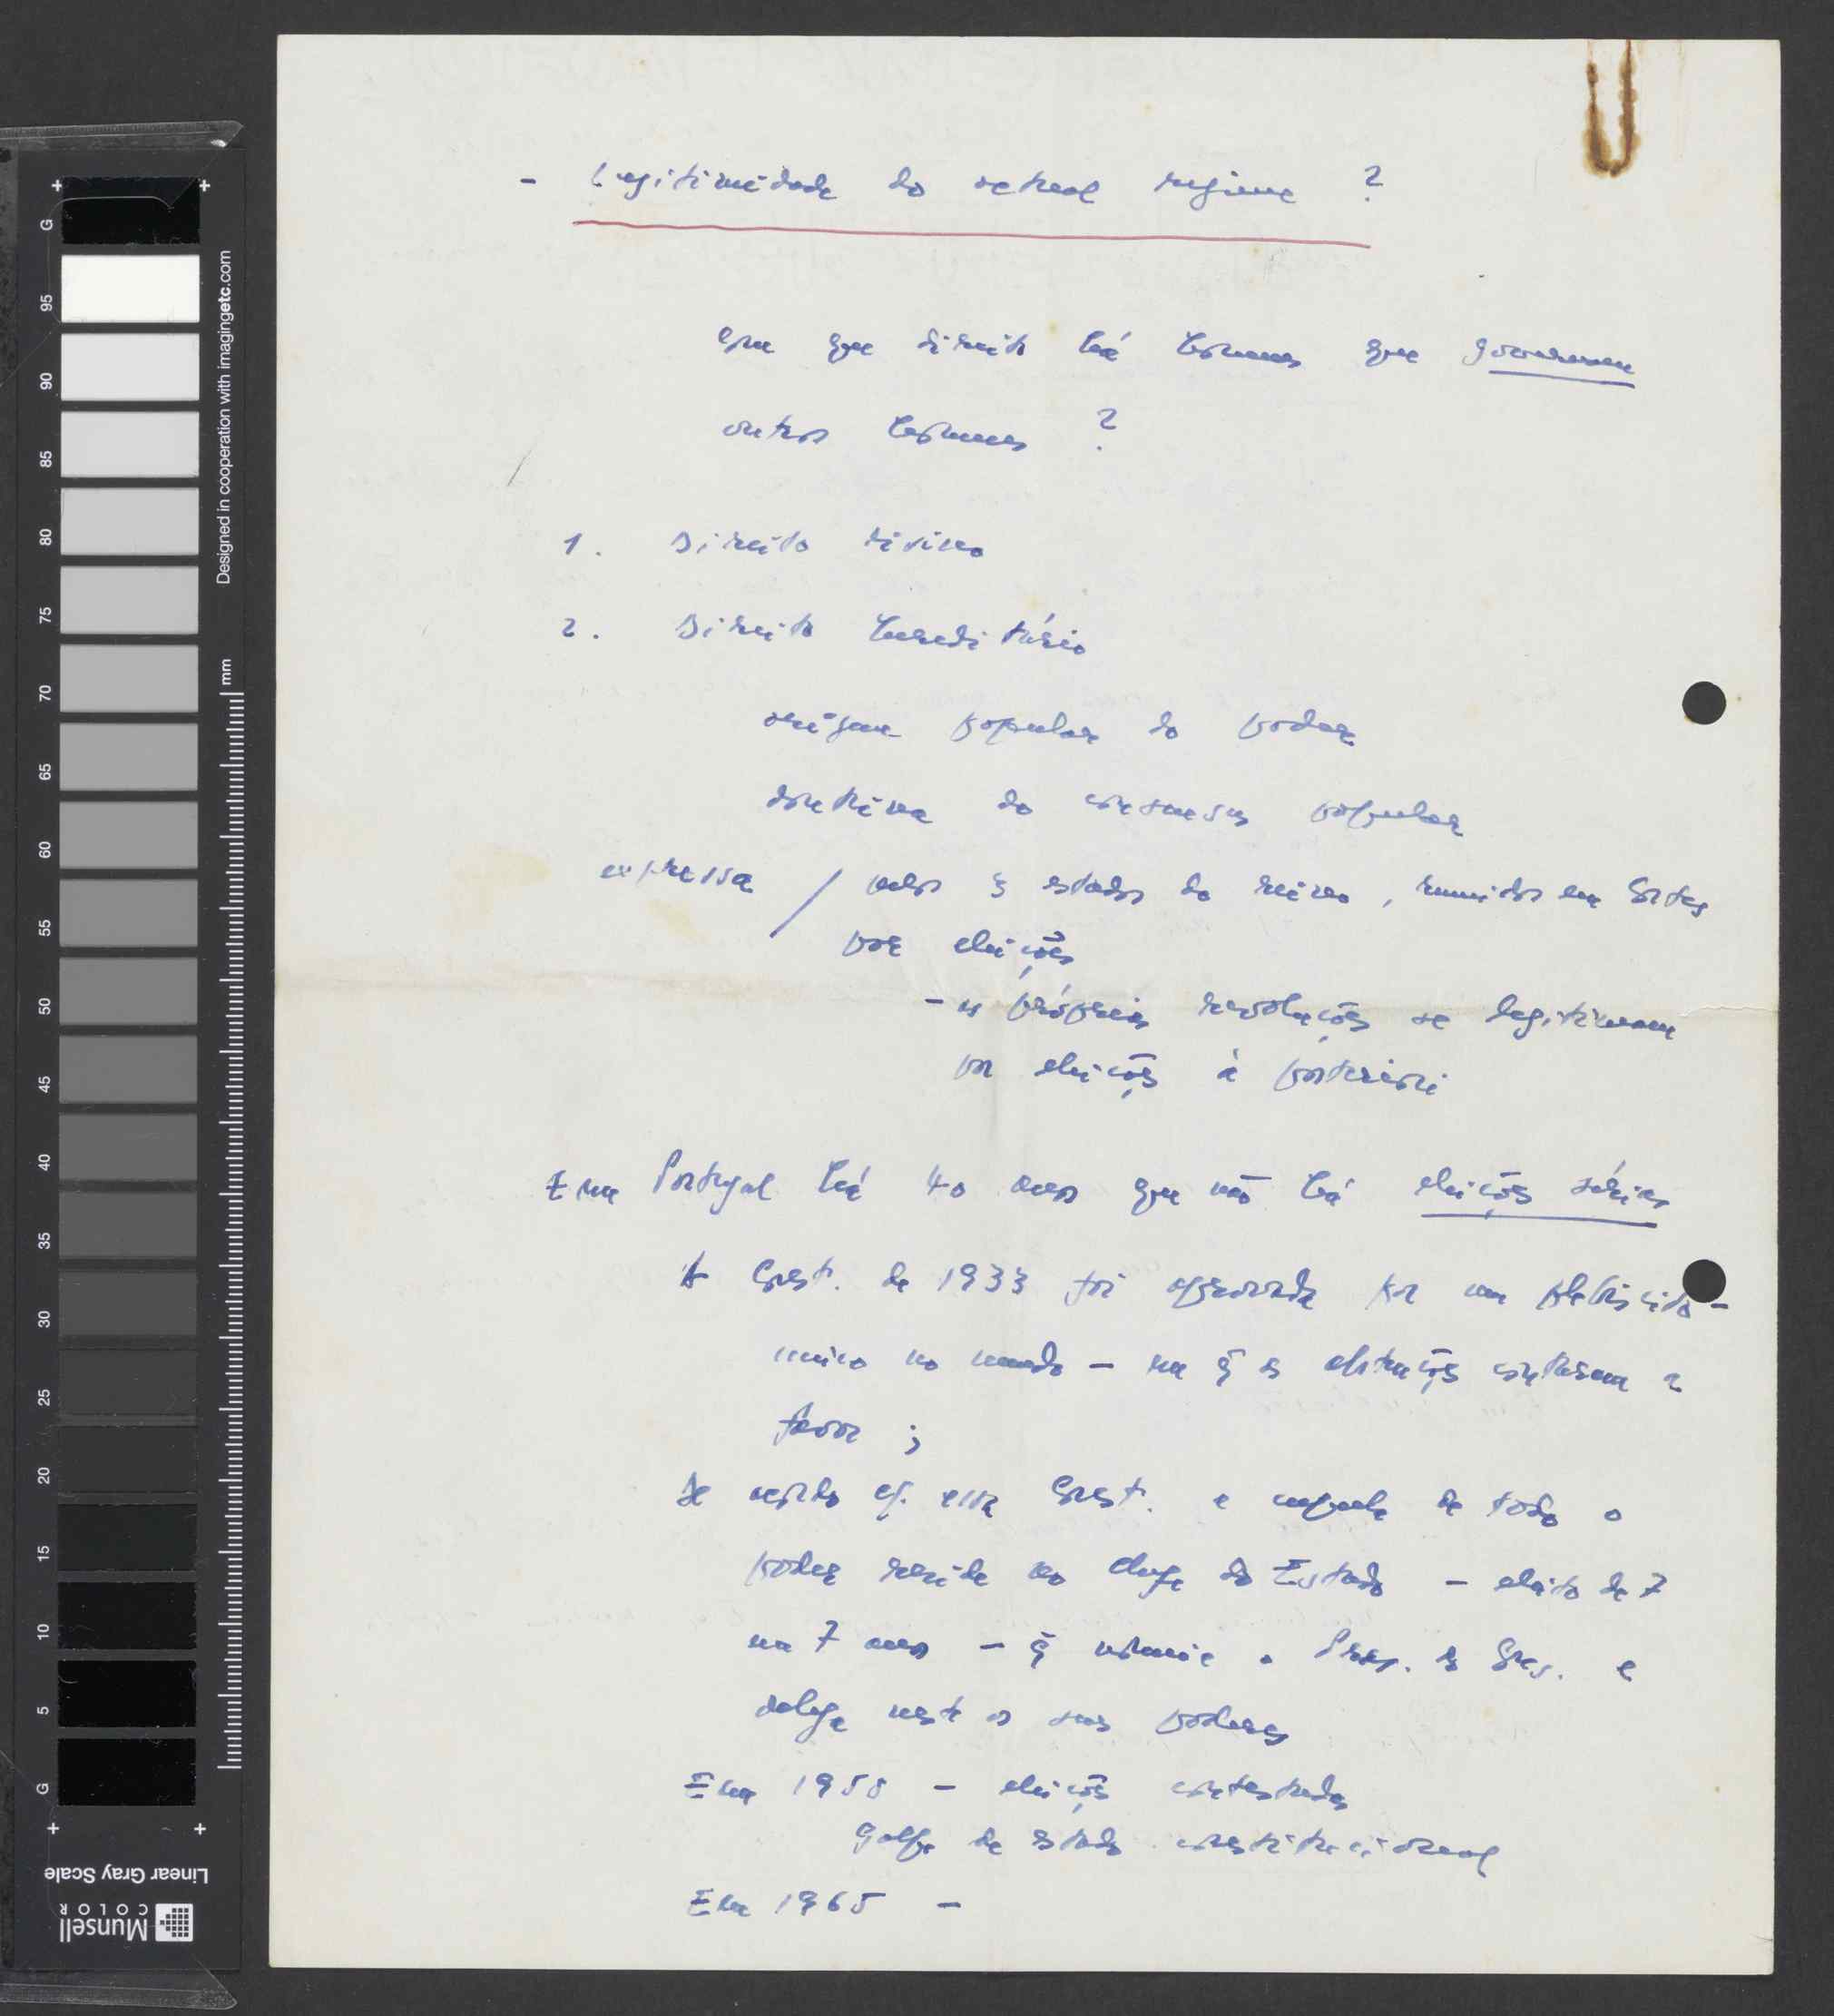 - Legitimidade do actual regime ?
com que direito há homens que governam
outros homens ?
1. Direito divino
2. Direito hereditário
origem popular do poder
doutrina do consensus popular
expressa / pelos 3 estados do reino, reunidos em Cortes
por eleições
- as próprias revoluções se legitimam
por eleições à posteriori
Em Portugal há 40 anos que não há eleições sérias
A Const. de 1933 foi aprovada por um plebiscito -
unico no mundo - em q̃ as abstenções contaram a
favor ;
De acordo c/. essa Const. a cupula de todo o
poder reside no chefe do Estado - eleito de 7
em 7 anos - q̃ nomeia o Pres. do Cons. e
delega neste os seus poderes
Em 1958 - eleições contestadas
golpe de estado constitucional
Em 1965 -
G 95 90 85 80 75 70 65 60 55 50 45 40 35 30 25 20 15 10 5 G
Designed in cooperation with imagingetc.com
mm
Linear Gray Scale
Munsell
COLOR